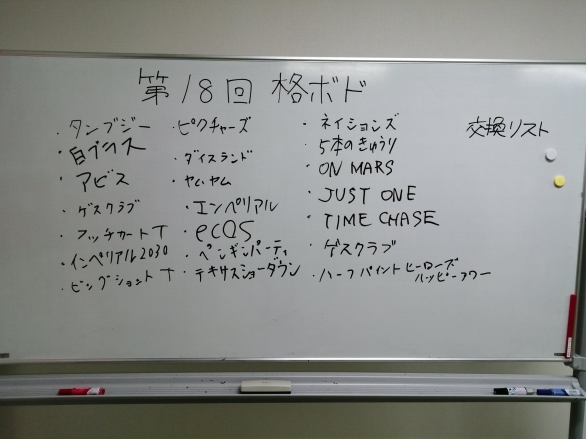 第18回 格ボド
・タンブジー
・白ブラス
・アビス
・ゲスクラブ
・フッチカートT
・インペリアル2030
・ビッグショットT
・ピクチャーズ
・ダイスランド
・ヤムヤム
・エンペリアル
・ecos
・ペンギンパーティ
・テキサスショーダウン
・ネイションズ
・5本のきゅうり
・ON MARS
・JUST ONE
・TIME CHASE
・ゲスクラブ
・ハーフパイントヒーローズ
ハッピーフラワー
交換リスト